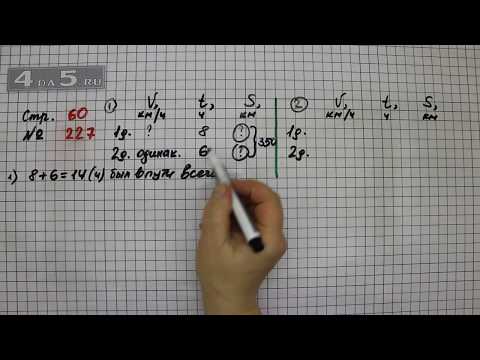 4 ДА 5.RU
Стр. 60
№ 227
① V, км/ч t, ч S, км
1д. ? 8 ?
2д. одинак. 6 ?
350
1) 8+6=14(ч) был в пути всего
② V, км/ч t, ч S, км
1д.
2д.